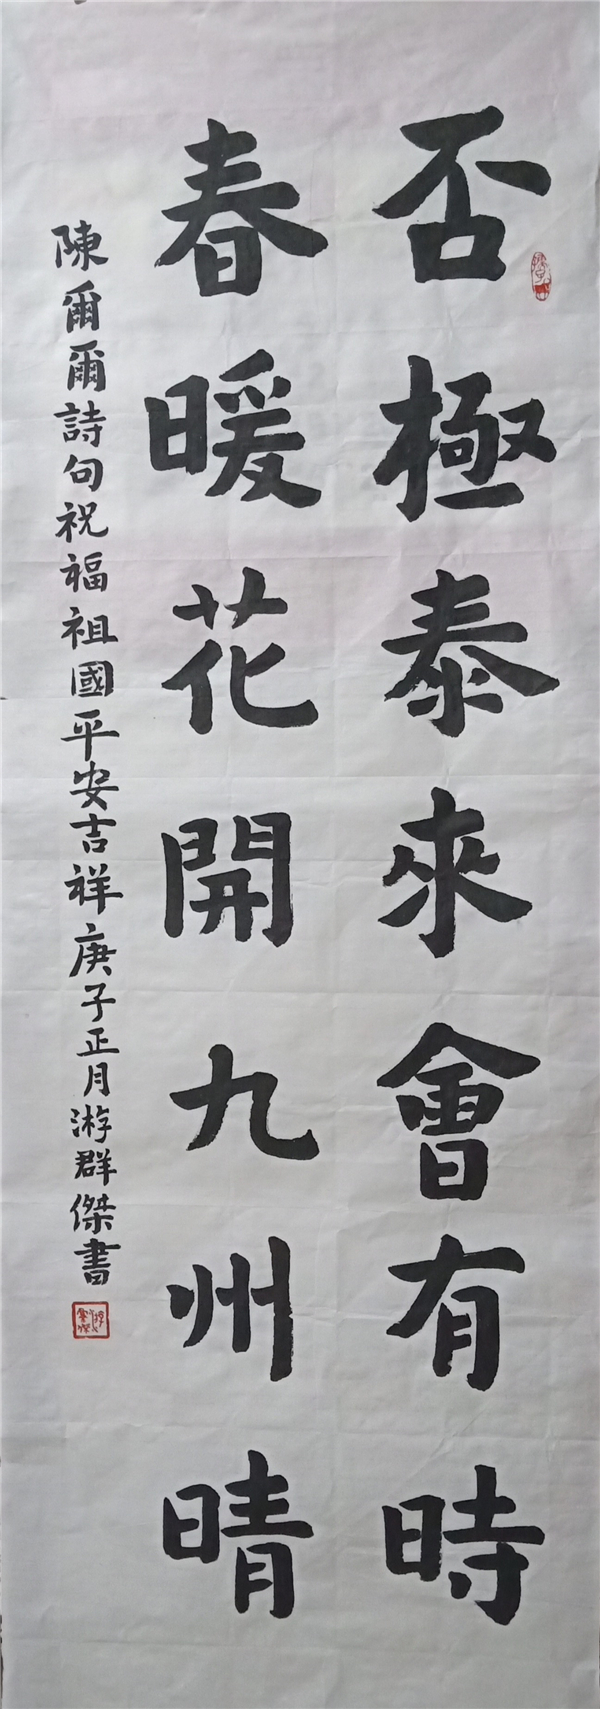 否極泰來會有時
春暖花開九州晴
陳爾爾詩句祝福祖國平安吉祥庚子正月游群傑書